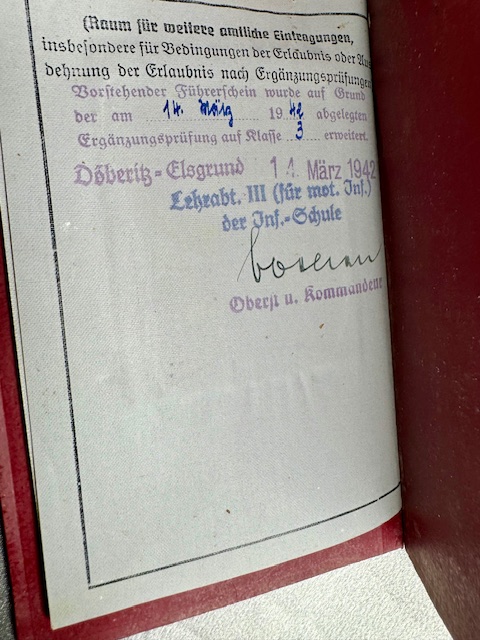 (Raum für weitere amtliche Eintragungen,
insbesondere für Bedingungen der Erlaubnis oder Aus
dehnung der Erlaubnis nach Ergänzungsprüfungen
Vorstehender Führerschein wurde auf Grund
der am 14. März 1942 abgelegten
Ergänzungsprüfung auf Klasse 3 erweitert.
Döberitz-Elsgrund 14. März 1942
Lehrabt. III (für mot. Inf.)
der Inf.-Schule
Oberst u. Kommandeur